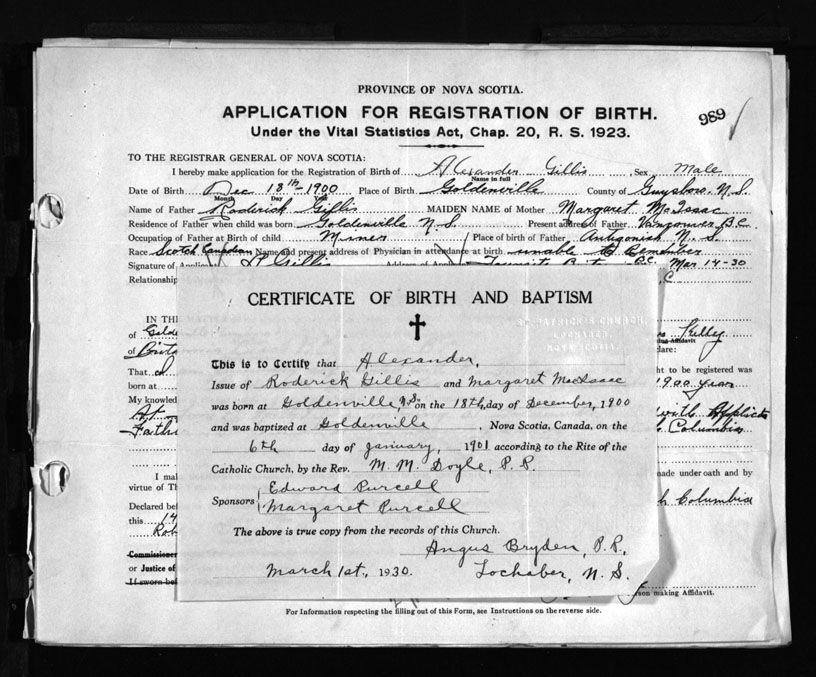 PROVINCE OF NOVA SCOTIA.
APPLICATION FOR REGISTRATION OF BIRTH.
989
Under the Vital Statistics Act, Chap. 20, R. S. 1923.
TO THE REGISTRAR GENERAL OF NOVA SCOTIA:
I hereby make application for the Registration of Birth of Alexander Gillis Sex Male
Name in full
Date of Birth Dec 18th 1900 Place of Birth Goldenville County of Guysboro, N.S.
Month Day Year
Name of Father Roderick Gillis MAIDEN NAME of Mother Margaret McIssac
Residence of Father when child was born Goldenville N.S. Present address of Father Vancouver B.C.
Occupation of Father at Birth of child Miner Place of birth of Father Antigonish N. S.
Race Scotch Canadian Name and present address of Physician in attendance at birth unable to Remember
Signature of Gillis Address of B.C. Mar 14-30
Relationship
CERTIFICATE OF BIRTH AND BAPTISM
This is to Certify that Alexander,
Issue of Roderick Gillis and Margaret MacIsaac
was born at Goldenville, N.S. on the 18th, day of December, 1900
and was baptized at Goldenville, Nova Scotia, Canada, on the
6th day of January, 1901 according to the Rite of the
Catholic Church, by the Rev. M. M. Doyle, P. P.
Sponsors Edward Purcell
Margaret Purcell
The above is true copy from the records of this Church.
Angus Bryden, P. P.,
March 1st, 1930. Lochaber, N. S.
IN TH
of Golde
of
That
born at
My knowled
At
Fath
I mak
virtue of Th
Declared bef
this 14
Rob
Commissioner
or Justice of
If sworn bef
Kelley
Affidavit
lare:
ht to be registered was
1900 years
Applicts
Columbia
made under oath and by
h Columbia
rson making Affidavit.
For Information respecting the filling out of this Form, see Instructions on the reverse side.